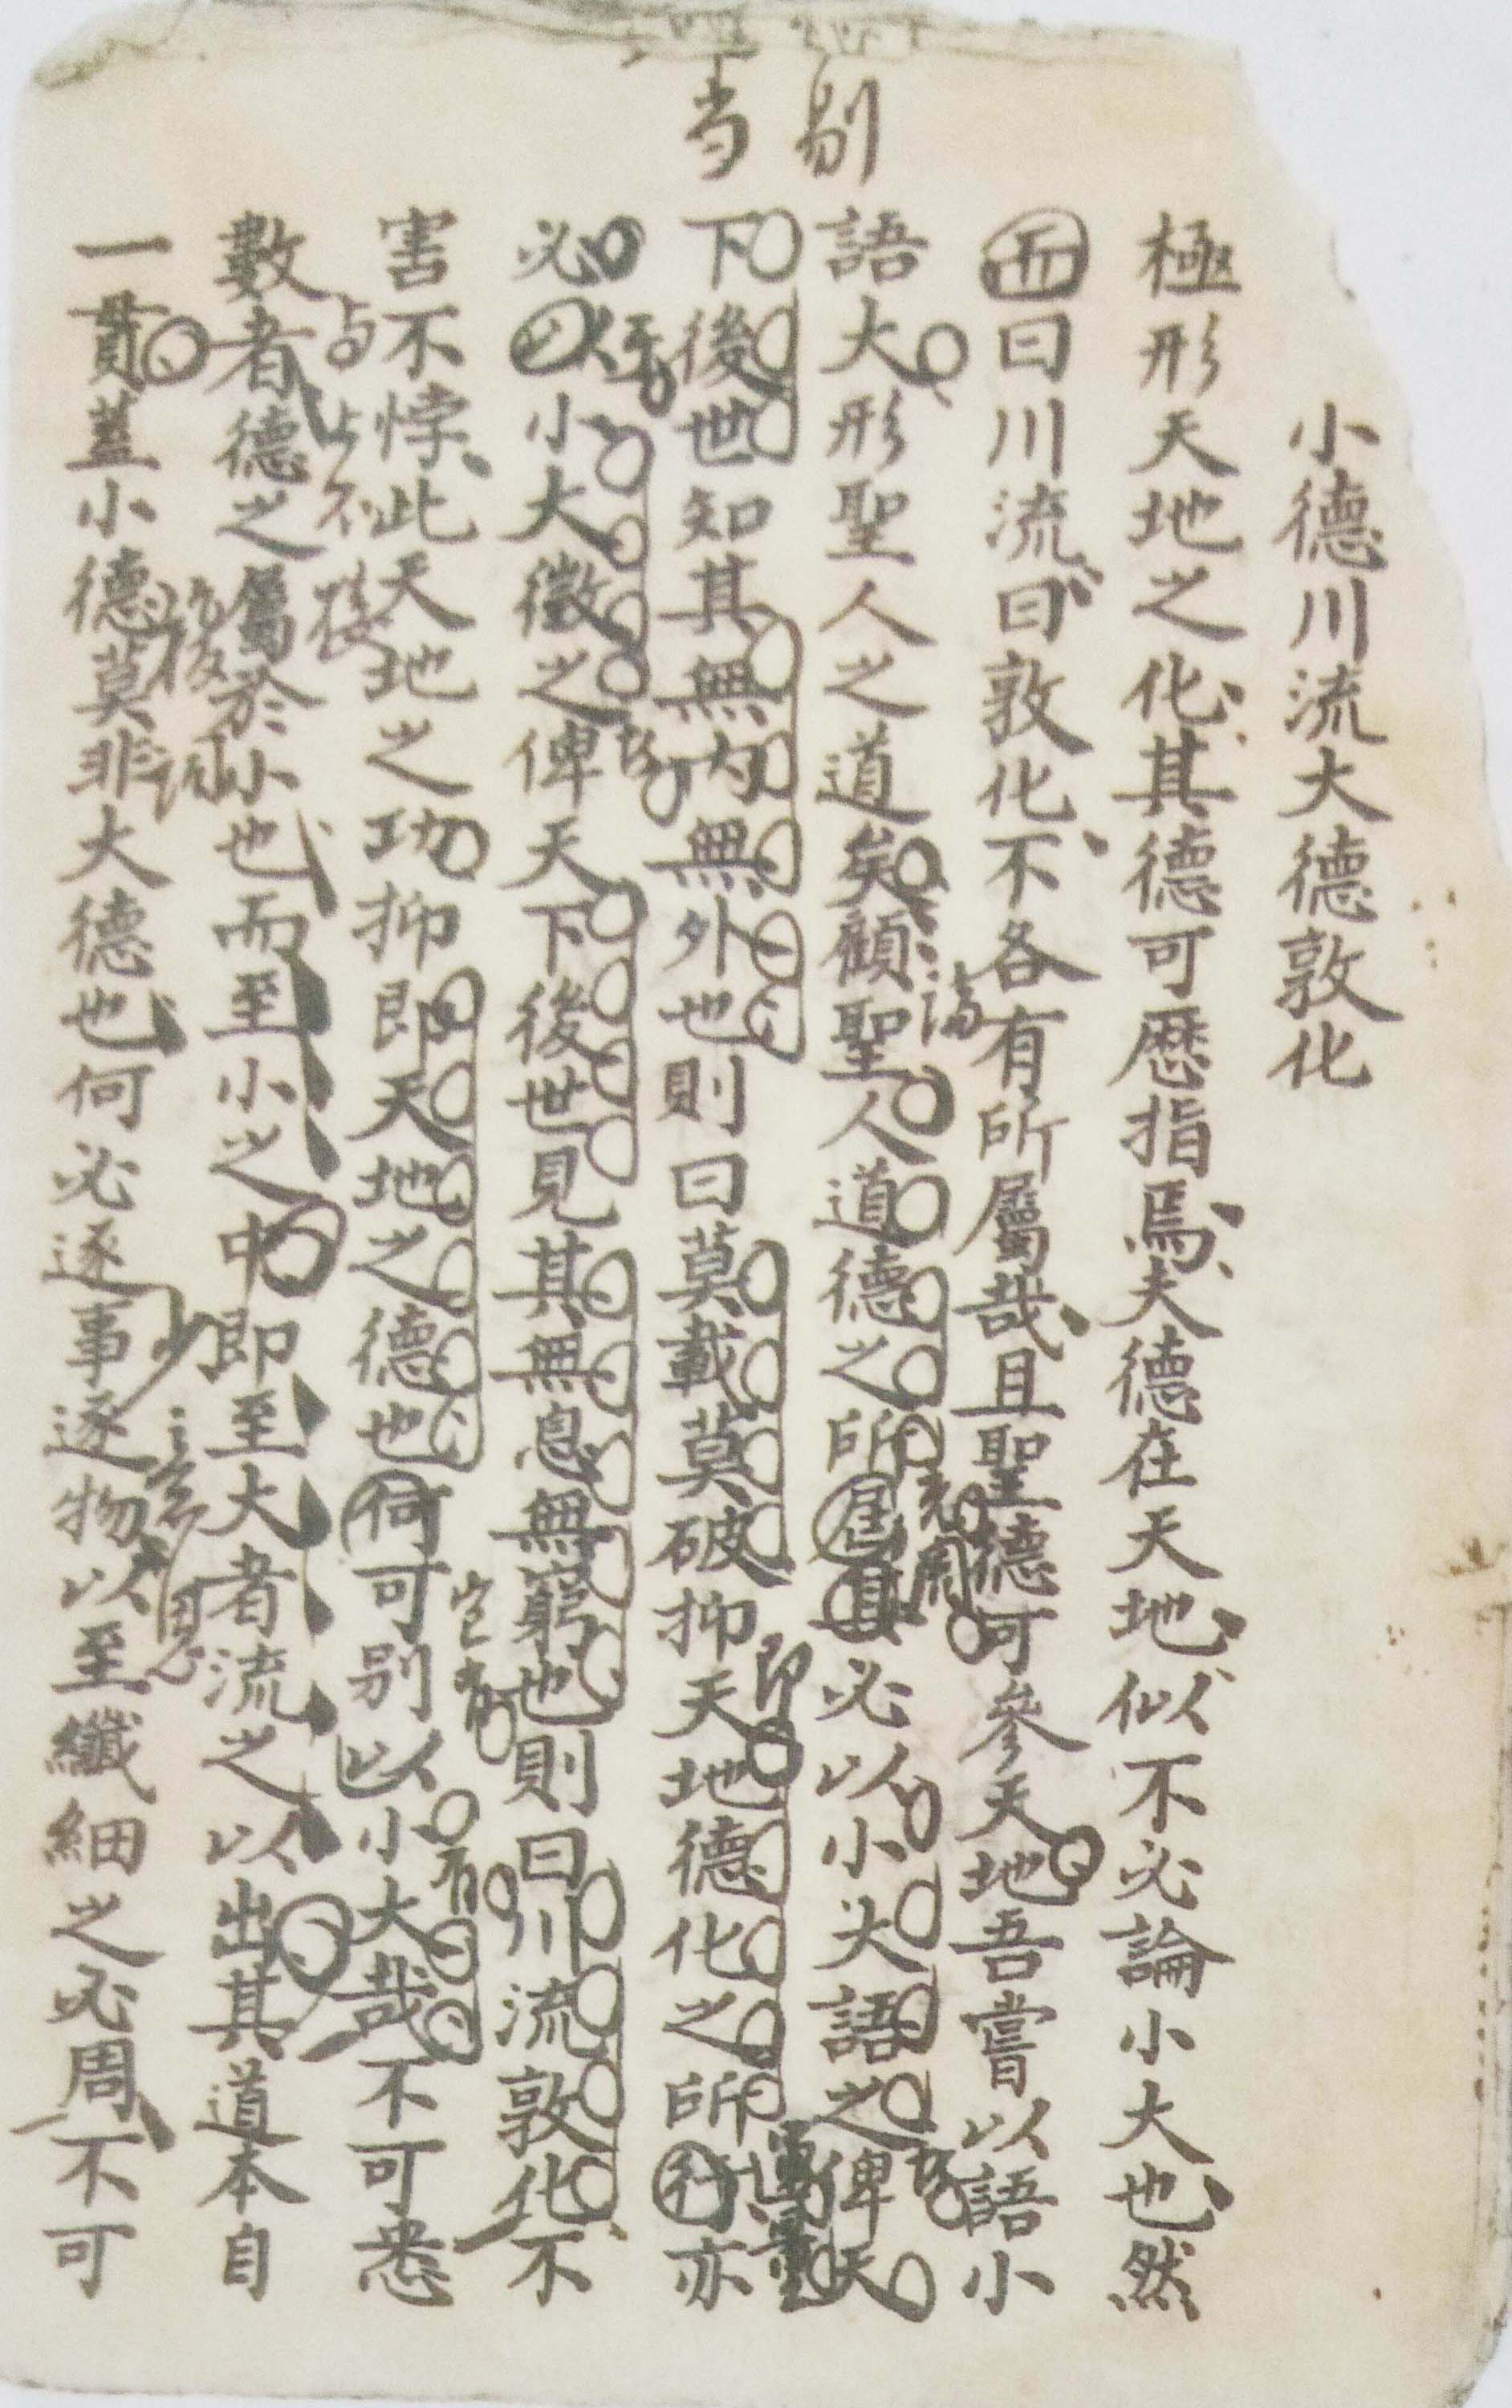 剔
当
小德川流大德敦化
極形天地之化其德可歷指焉夫德在天地似不必論小大也然
而曰川流曰敦化不各有所屬哉且聖德可參天地吾嘗以語小
語大形聖人之道矣顧聖人道德之所屆其必以小大語之俾天
下後世知其無內無外也則曰莫載莫破抑天地德化之所行亦
必以小大徵之俾天下後世見其無息無窮也則曰川流敦化不
害不悖此天地之功抑即天地之德也何可别以小大哉不可悉
數者德之屬於小也而至小之中即至大者流之以出其道本自
一貫蓋小德莫非大德也何必逐事逐物以至纖細之必周不可